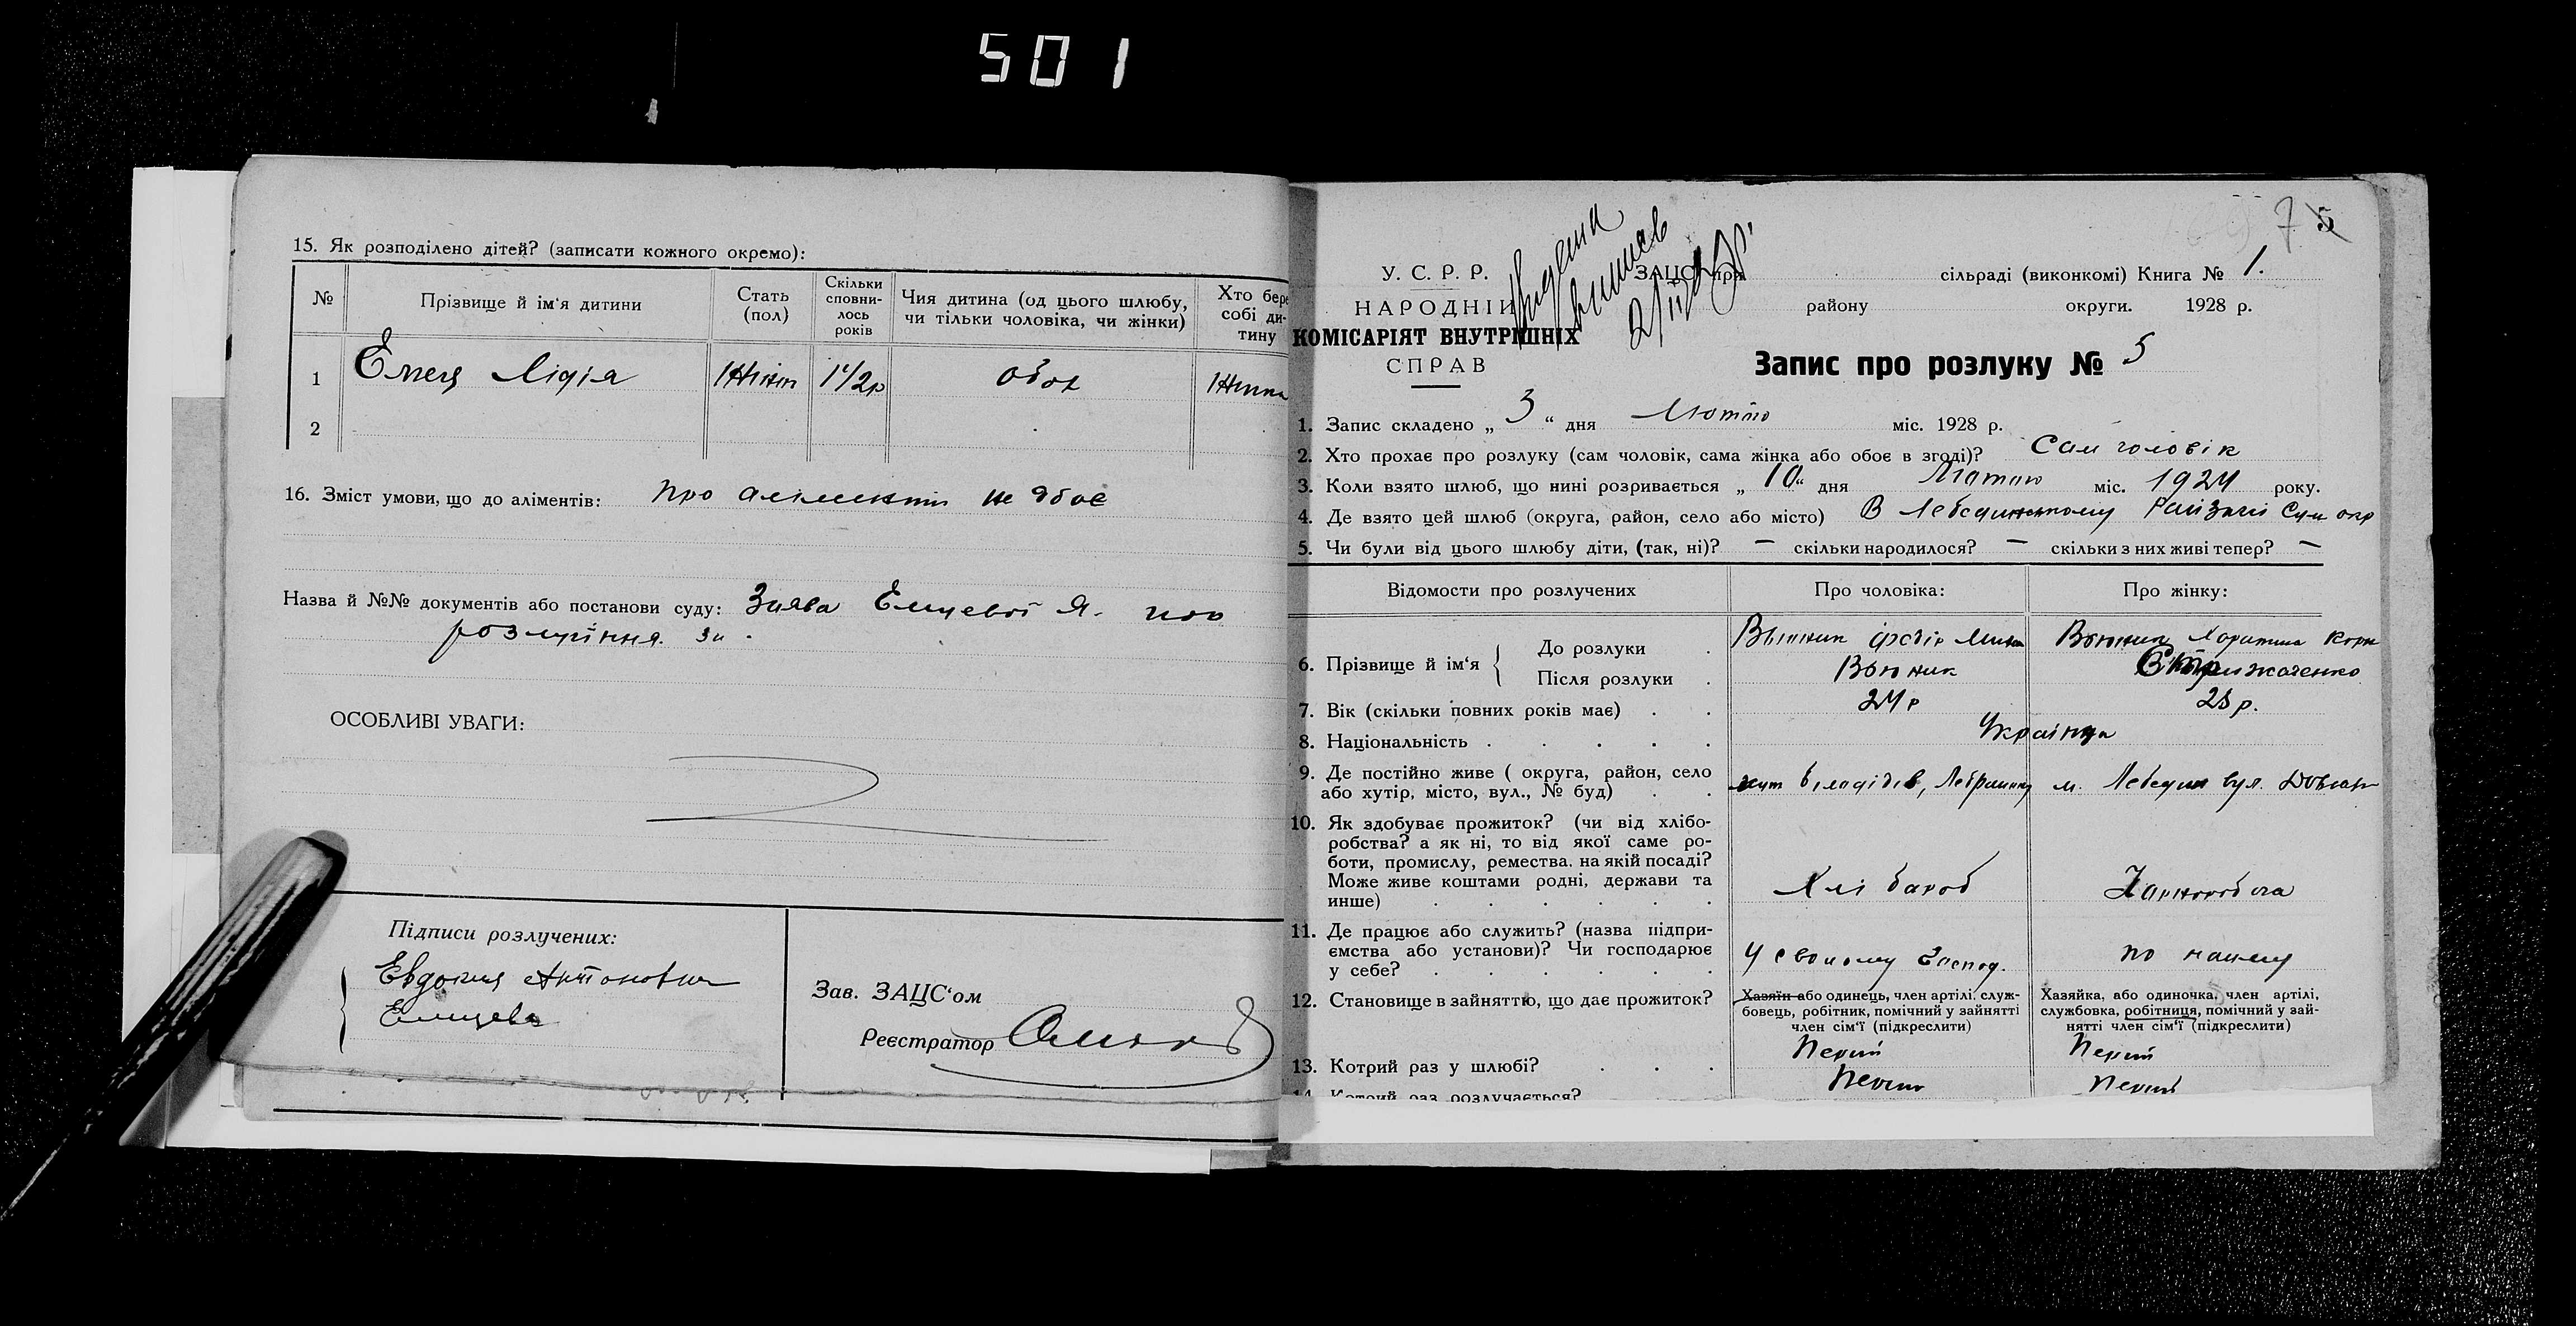 501
15. Як розподілено дітей? (записати кожного окремо):
№ Прізвище й ім'я дитини Стать (пол) Скільки сповни-лось років Чия дитина (од цього шлюбу, чи тільки чоловіка, чи жінки) Хто бере собі ди-тину
1 Емец Лідія Жіноч 1 1/2р обох Жинка
2
16. Зміст умови, що до аліментів: про алименти не дбає
Назва й №№ документів або постанови суду: Заява Емцевої Я. про
розлучіння
ОСОБЛИВІ УВАГИ:
Підписи розлучених:
Евдокия Антоновна
Емцева
Зав. ЗАЦС'ом
Реєстратор
7 5
У. С. Р. Р.
НАРОДНІЙ
КОМІСАРІЯТ ВНУТРІШНІХ
СПРАВ
ЗАЦС при сільраді (виконкомі) Книга № 1.
району округи. 1928 р.
Запис про розлуку № 5
1. Запис складено „ 3 “ дня Лютого міс. 1928 р.
2. Хто прохає про розлуку (сам чоловік, сама жінка або обоє в згоді)? Сам чоловік
3. Коли взято шлюб, що нині розривається „ 10 “ дня Лютого міс. 1924 року.
4. Де взято цей шлюб (округа, район, село або місто) В Лебединському Райзагсі Сум окр
5. Чи були від цього шлюбу діти, (так, ні)? — скільки народилося? — скільки з них живі тепер? —
Відомости про розлучених Про чоловіка: Про жінку:
6. Прізвище й ім'я
До розлуки Вьюник Федір Вьюник Харитина Корн
Після розлуки Вьюник Стрижаченко
7. Вік (скільки повних років має) 24 р 23 р.
8. Національність Українци
9. Де постійно живе ( округа, район, село
або хутір, місто, вул., № буд) хут м. Лебедин вул.
10. Як здобуває прожиток? (чи від хлібо-
робства? а як ні, то від якої саме ро-
боти, промислу, ремества. на якій посаді?
Може живе коштами родні, держави та
инше) Хлібароб Чорноробоча
11. Де працює або служить? (назва підпри-
ємства або установи)? Чи господарює
у себе? У своєму Господ. по найму
12. Становище в зайняттю, що дає прожиток?
Хазяїн або одинець, член артілі, служ-
бовець, робітник, помічний у зайнятті
член сім'ї (підкреслити)
Хазяйка, або одиночка, член артілі,
службовка, робітниця, помічний у зай-
нятті член сім'ї (підкреслити)
13. Котрий раз у шлюбі? Перший Перший
14. Котрий раз розлучається? Перший Перший